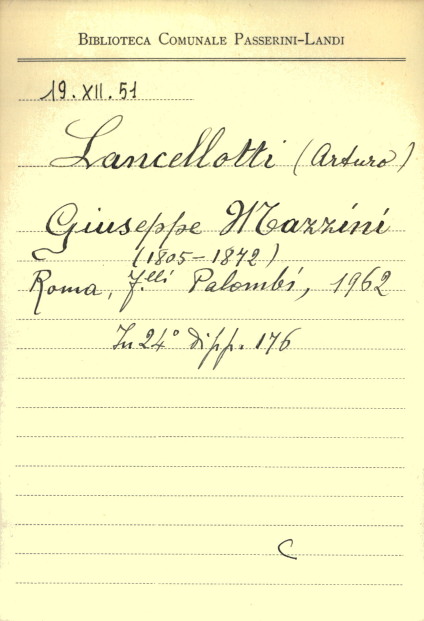 BIBLIOTECA COMUNALE PASSERINI-LANDI
19. XII. 51
Lancellotti (Arturo)
Giuseppe Mazzini
(1805-1872)
Roma, F.lli Palombi, 1962
In 24° di pp. 176
C